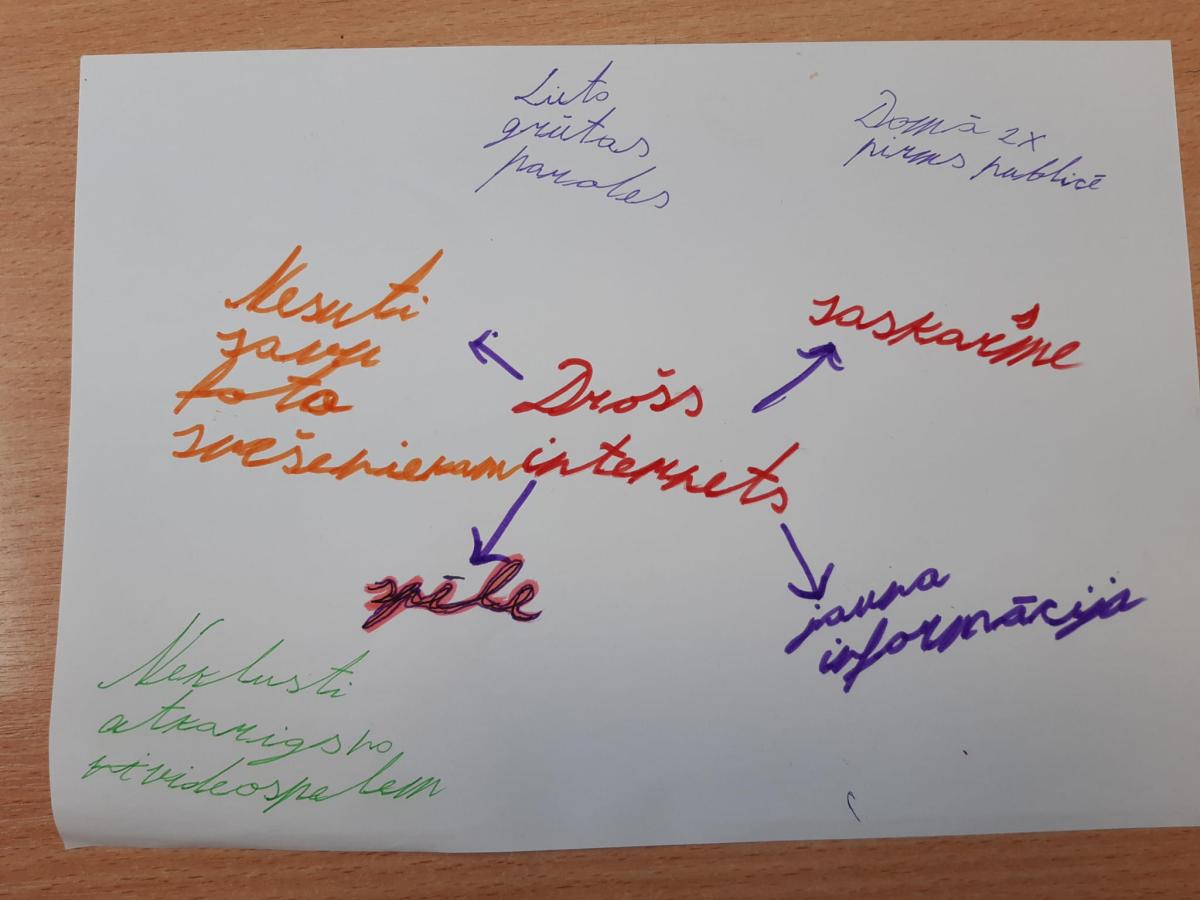 Lieto
grūtas
paroles
Domā 2x
pirms publicē
Nesuti
savu
foto
svešeniekam
saskarsme
Drošs
internets
spēle
jauna
informācija
Neklusti
atkarigs no
videospelem